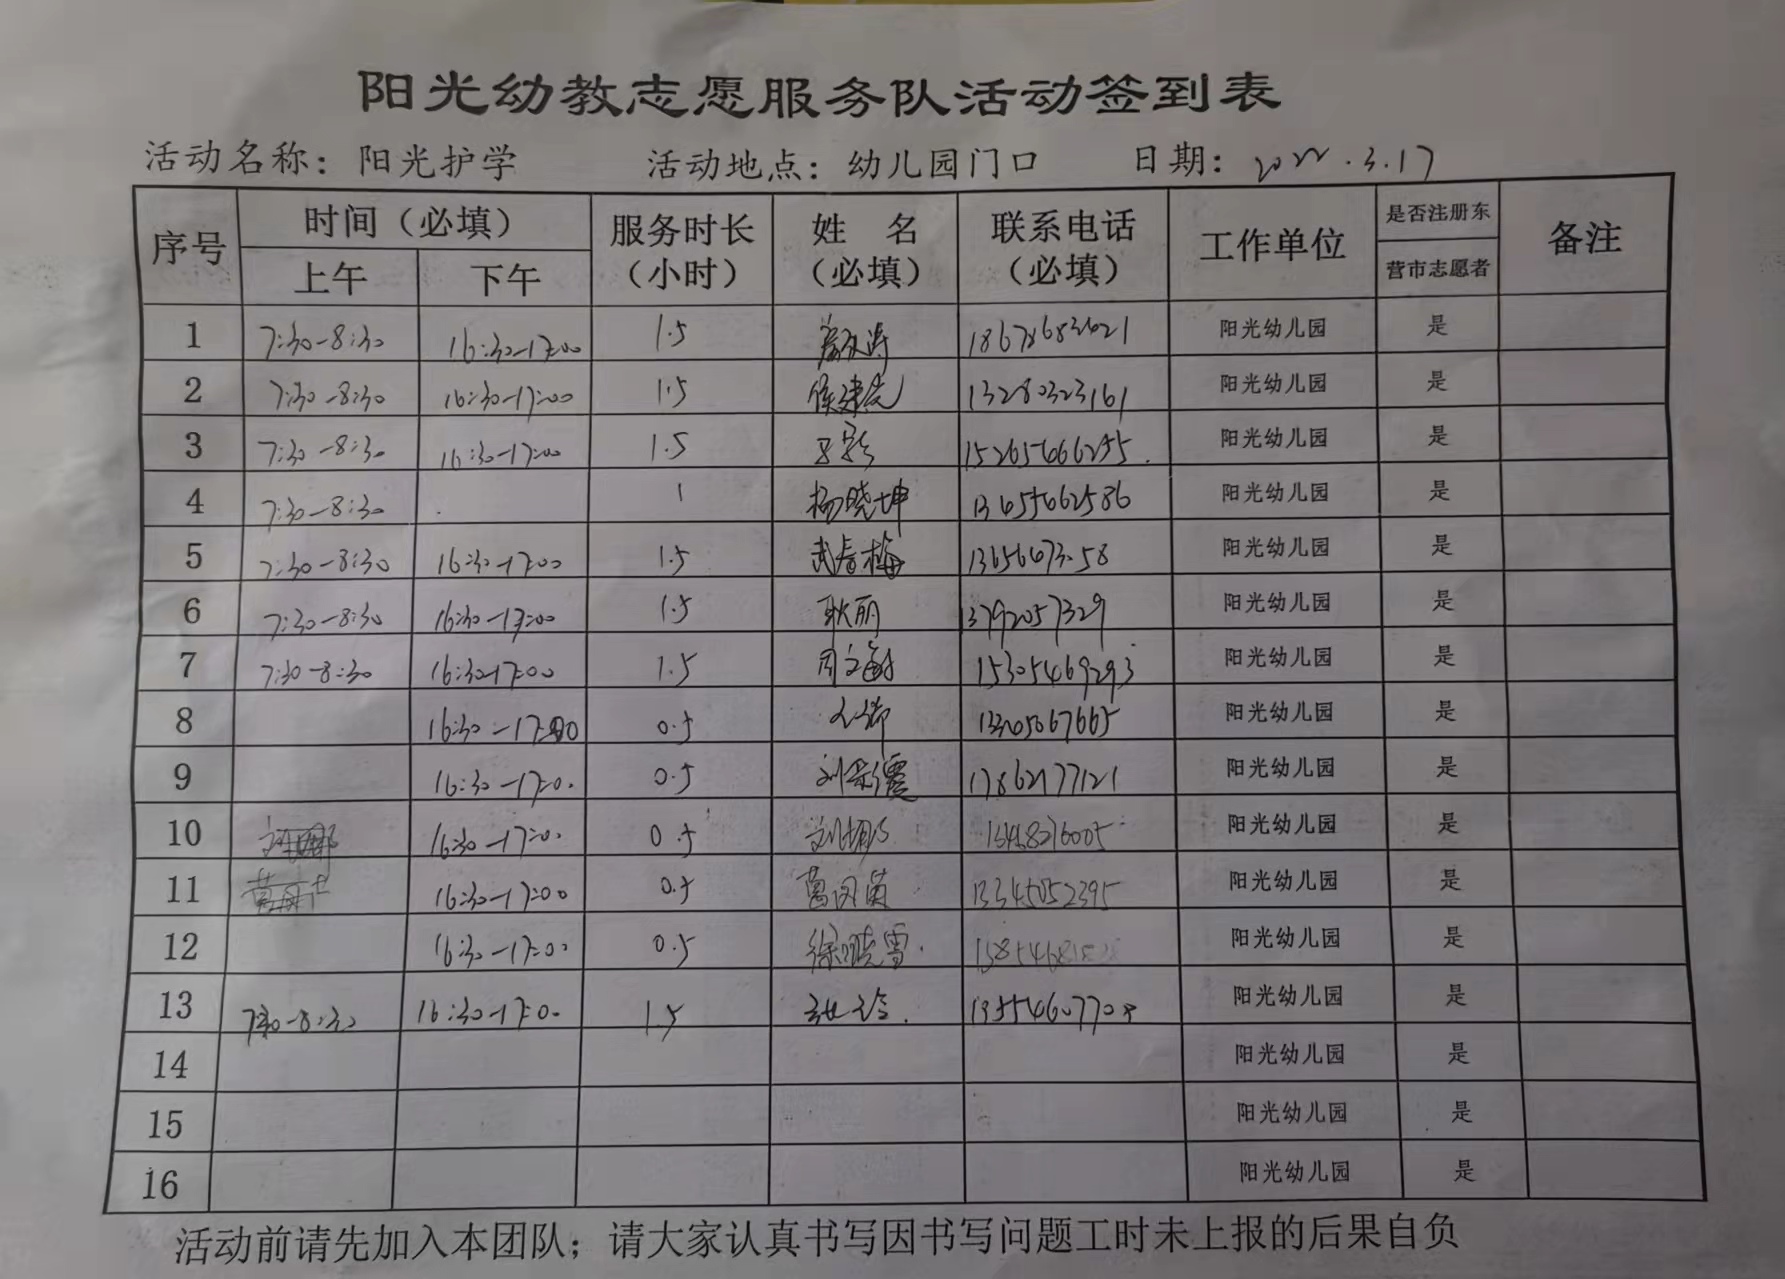 阳光幼教志愿服务队活动签到表
活动名称：阳光护学 活动地点：幼儿园门口 日期：2022.3.17
序号 时间（必填） 服务时长（小时） 姓 名（必填） 联系电话（必填） 工作单位 是否注册东营市志愿者 备注
上午 下午
1 7:30-8:30 16:30-17:00 1.5 18678683621 阳光幼儿园 是
2 7:30-8:30 16:30-17:00 1.5 13280323161 阳光幼儿园 是
3 7:30-8:30 16:30-17:00 1.5 15265666295 阳光幼儿园 是
4 7:30-8:30 1 杨晓坤 13655662586 阳光幼儿园 是
5 7:30-8:30 16:30-17:00 1.5 武春梅 阳光幼儿园 是
6 7:30-8:30 16:30-17:00 1.5 耿丽 13792057329 阳光幼儿园 是
7 7:30-8:30 16:30-17:00 1.5 15305469293 阳光幼儿园 是
8 16:30-17:00 0.5 阳光幼儿园 是
9 16:30-17:00 0.5 17862177121 阳光幼儿园 是
10 16:30-17:00 0.5 阳光幼儿园 是
11 16:30-17:00 0.5 13345052395 阳光幼儿园 是
12 16:30-17:00 0.5 徐晓雪 阳光幼儿园 是
13 7:30-8:30 16:30-17:00 1.5 阳光幼儿园 是
14 阳光幼儿园 是
15 阳光幼儿园 是
16 阳光幼儿园 是
活动前请先加入本团队；请大家认真书写因书写问题工时未上报的后果自负